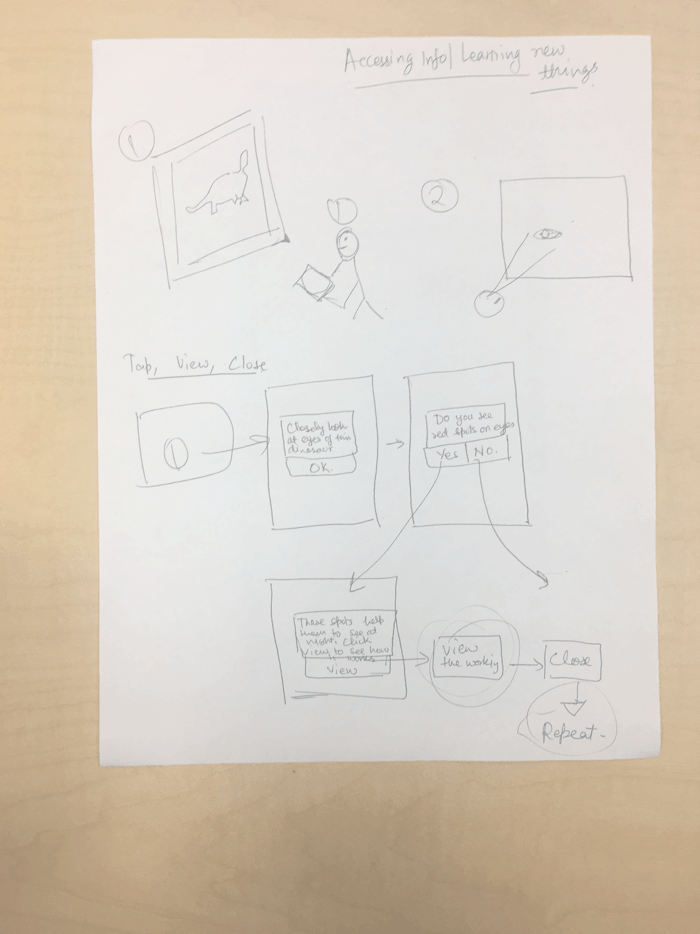 Accessing Info/ Learning new
things
1
1
2
Tap, View, Close
1
Closely look
at eyes of this
dinosaur
OK.
Do you see
red spots on eyes
Yes
No.
These spots help
them to see at
night. Click
view to see how
it works
View
View
the working
Close
Repeat.